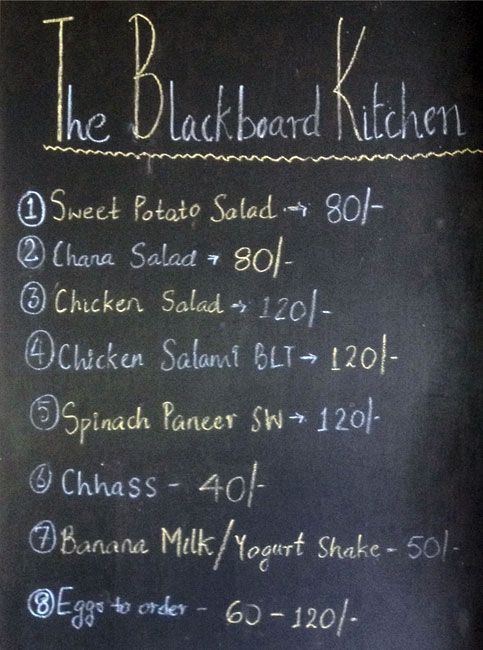 The Blackboard Kitchen
1 Sweet Potato Salad → 80/-
2 Chana Salad → 80/-
3 Chicken Salad → 120/-
4 Chicken Salami BLT → 120/-
5 Spinach Paneer SW → 120/-
6 Chhass - 40/-
7 Banana Milk/Yogurt Shake - 50/-
8 Eggs to order - 60 - 120/-